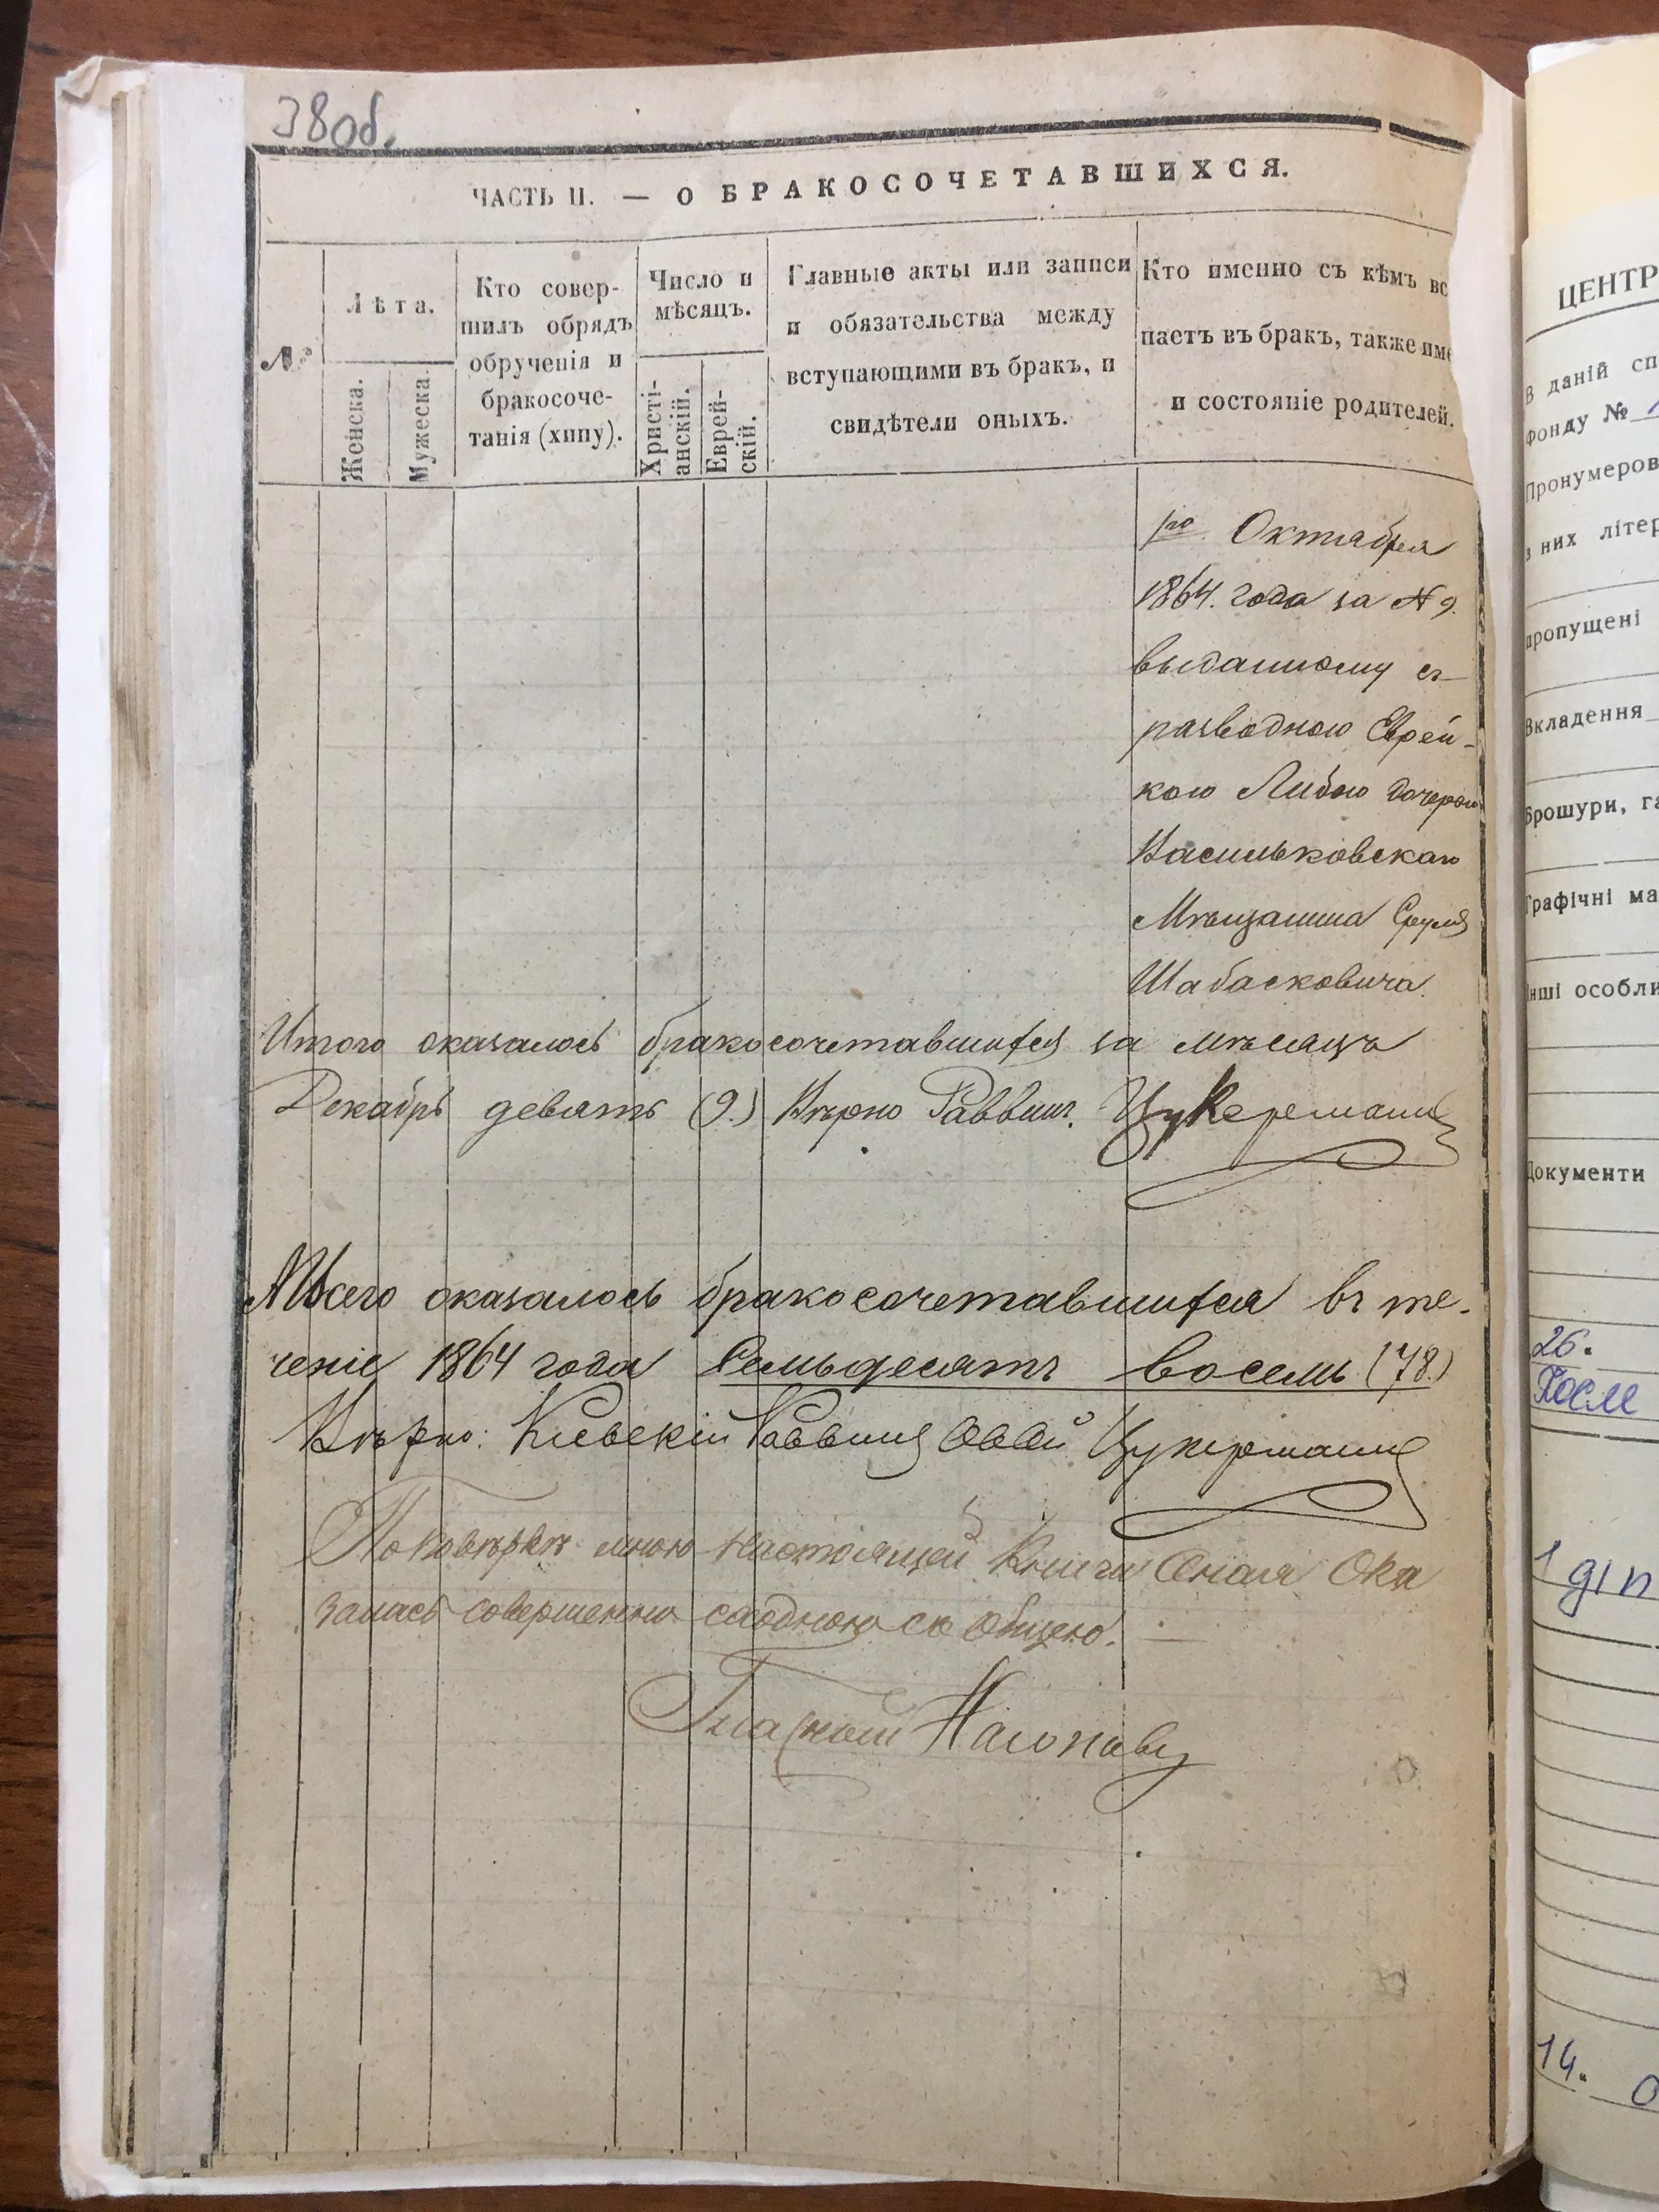 38 об.
ЧАСТЬ II. — О БРАКОСОЧЕТАВШИХСЯ.
№
Лѣта.
Женска.
Мужеска.
Кто совер-
шилъ обрядъ
обрученія и
бракосоче-
танія (хипу).
Число и
мѣсяцъ.
Христі-
анскій.
Еврей-
скій.
Главные акты или записи
и обязательства между
вступающими въ бракъ, и
свидѣтели оныхъ.
Кто именно съ кѣмъ вс
паетъ въ бракъ, также име
и состояніе родителей.
1го Октября
1864. года за № 9.
выданному съ
разводною Еврей-
кою Либою дочерью
Васильковскаго
Мѣщанина Сруля
Шабасковича.
Итого оказалось бракосочетавшихся за мѣсяцъ
Декабрь девять (9.) Вѣрно Раввинъ. Цукерманъ
Всего оказалось бракосочетавшихся въ те-
ченіе 1864 года Семьдесятъ восемь (78.)
Вѣрно: Кіевскій Раввинъ Овсѣй Цукерманъ
По повѣркѣ мною настоящей Книги Оная Ока
залась совершенно сходною съ общею. —
Гласный
ЦЕНТР
В даній сп
фонду №
Пронумеров
з них літер
пропущені
Вкладення
Брошури, га
Графічні ма
Інші особли
Документи
26.
После
1 діл
14. о